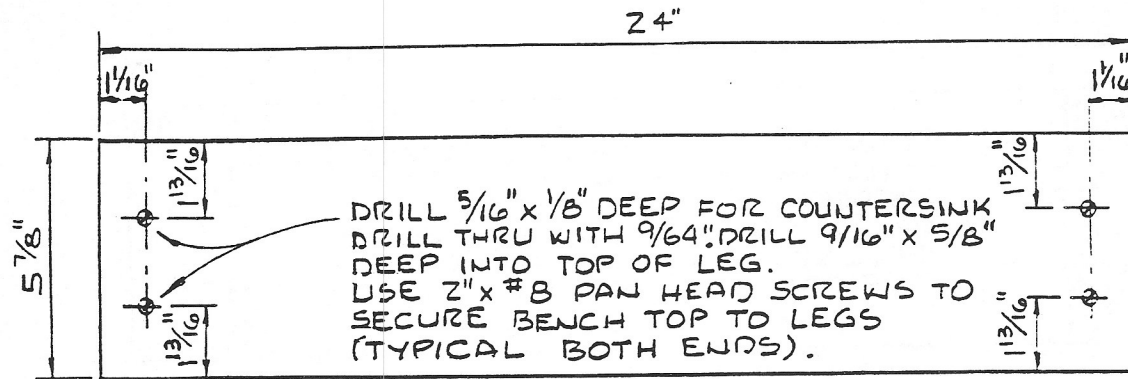 24"
1 1/16"
1 1/16"
1 13/16"
1 13/16"
5 7/8"
DRILL 5/16" x 1/8" DEEP FOR COUNTERSINK
DRILL THRU WITH 9/64". DRILL 9/16" x 5/8"
DEEP INTO TOP OF LEG.
USE 2" x #8 PAN HEAD SCREWS TO
SECURE BENCH TOP TO LEGS
(TYPICAL BOTH ENDS).
1 13/16"
1 13/16"